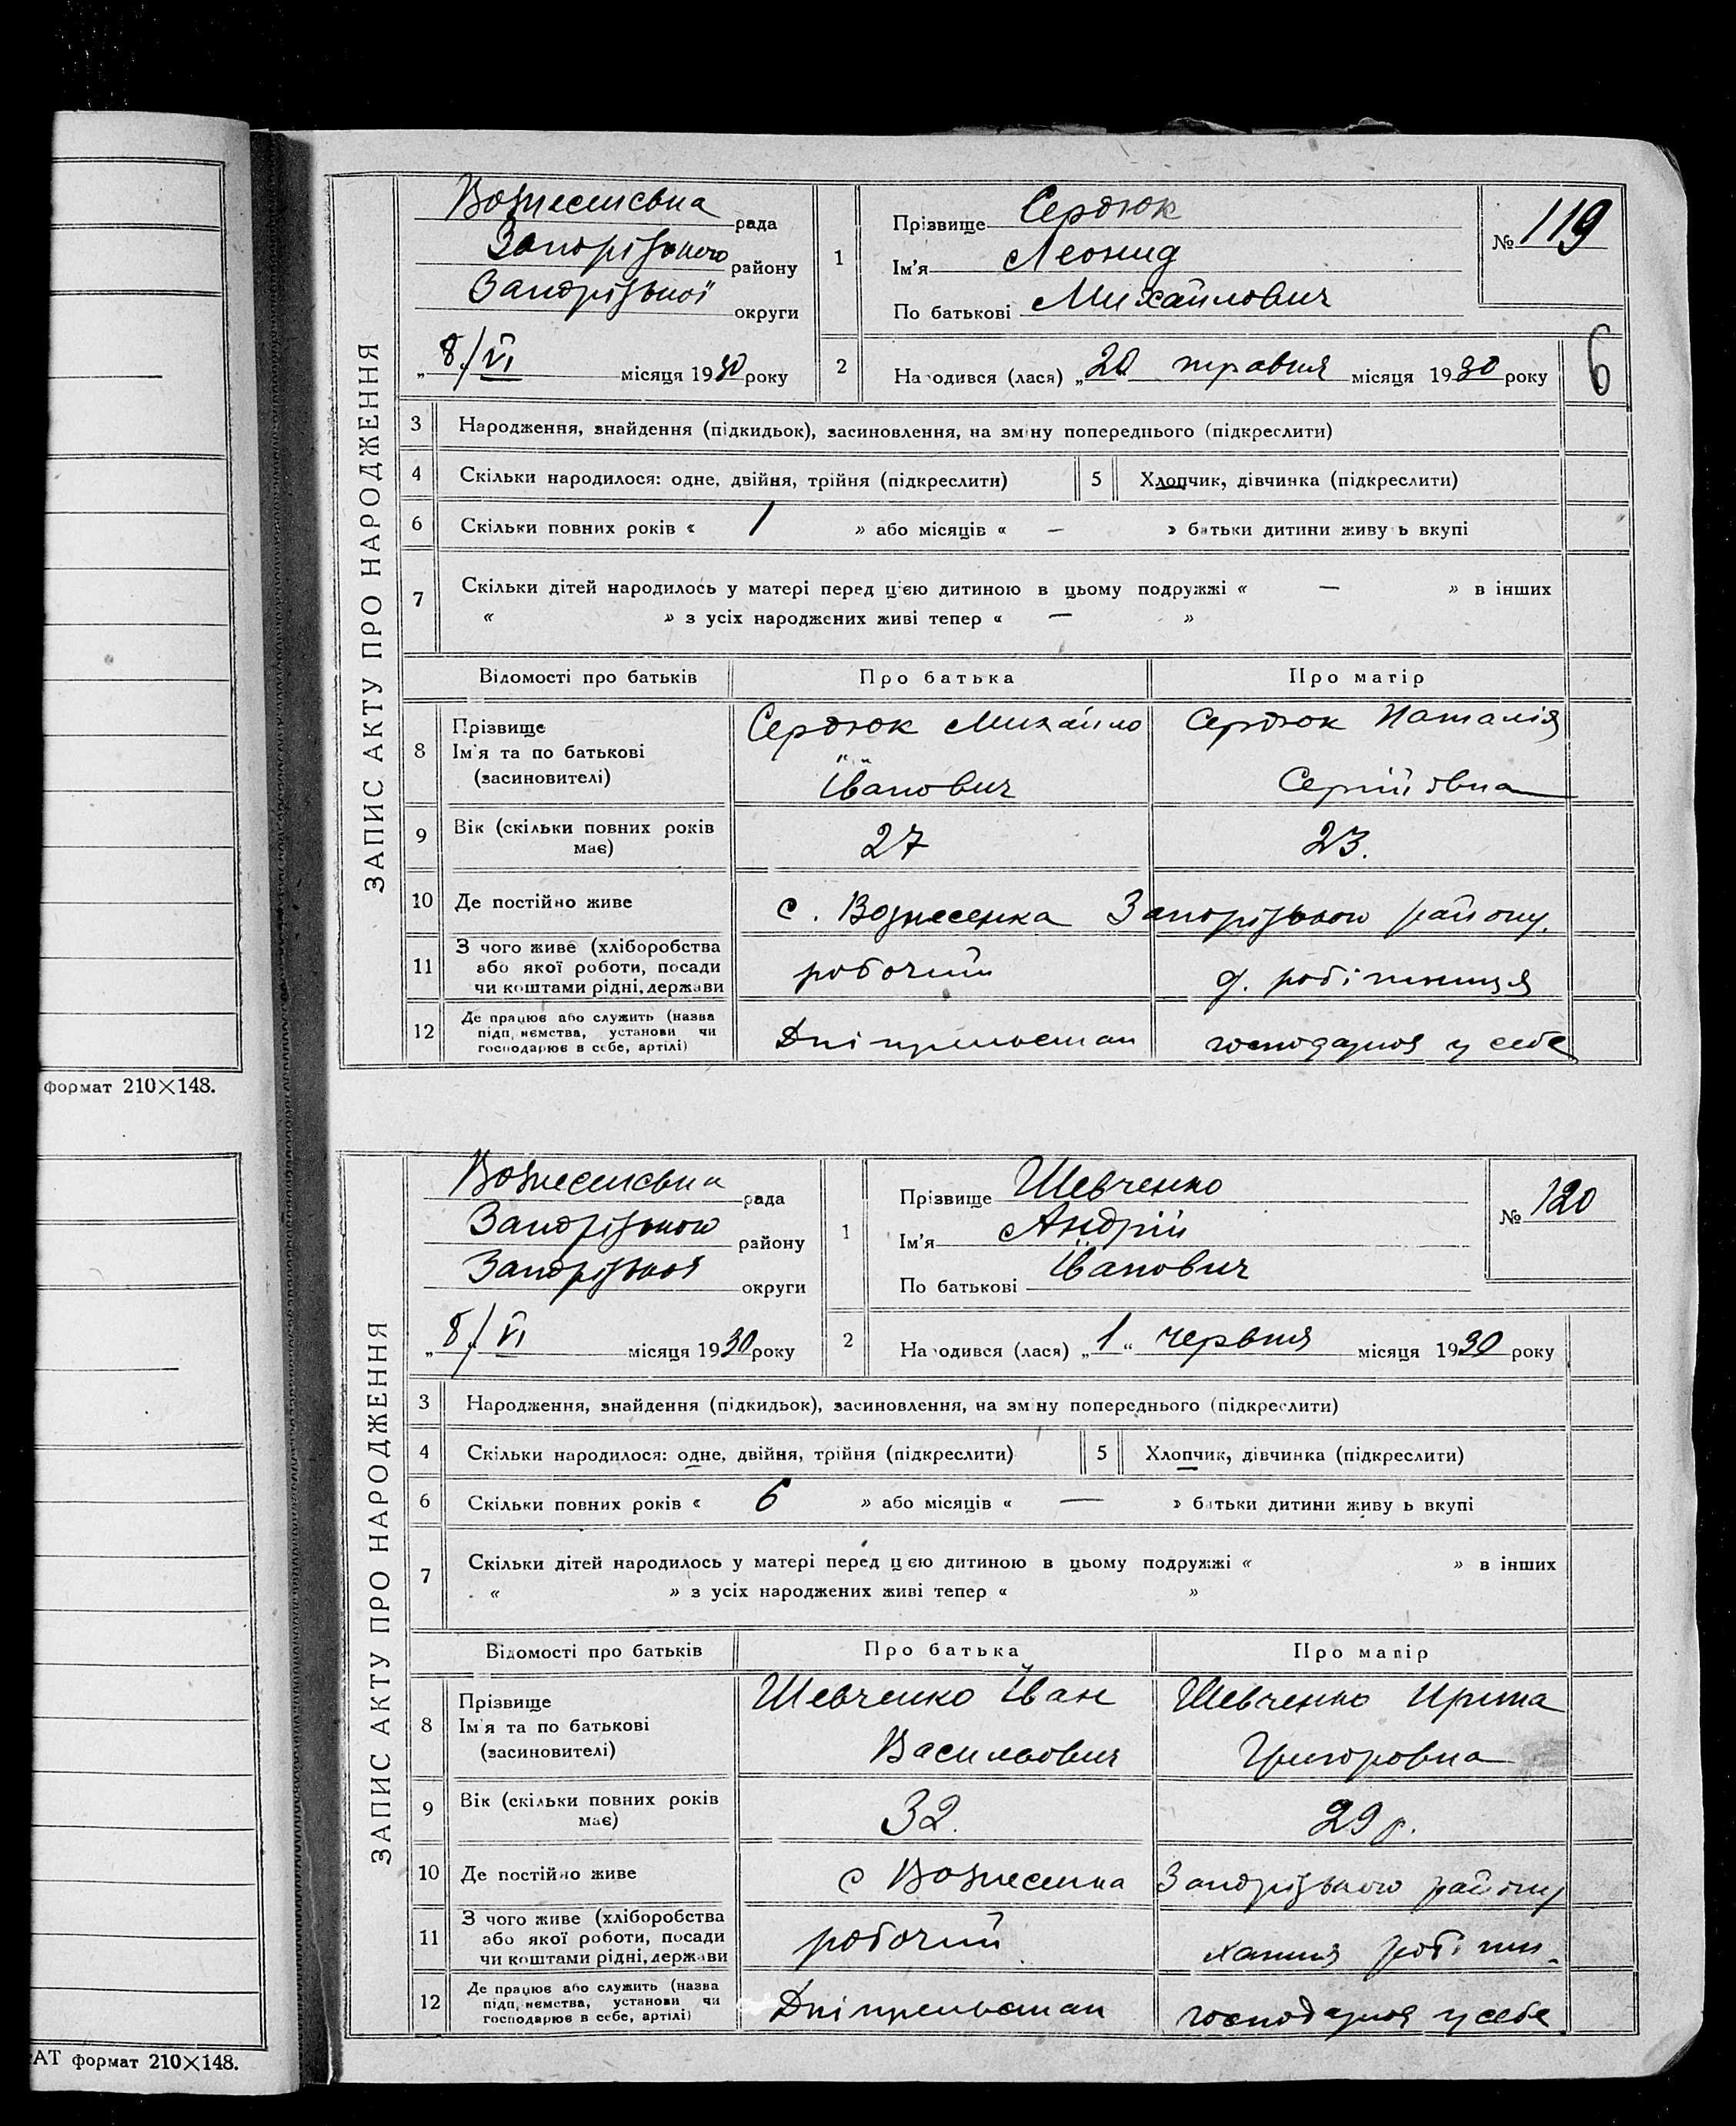 формат 210×148.
АТ формат 210×148.
ЗАПИС АКТУ ПРО НАРОДЖЕННЯ
Вознесенська рада
Запорізького району
Запорізької округи
„8/VI місяця 1930 року
1
Прізвище Сердюк
Ім'я Леонид
По батькові Михайлович
№ 119
2
На одився (лася) „20 травня місяця 1930 року
6
3 Народження, знайдення (підкидьок), засиновлення, на зміну попереднього (підкреслити)
4 Скільки народилося: одне, двійня, трійня (підкреслити) 5 Хлопчик, дівчинка (підкреслити)
6 Скільки повних років « 1 » або місяців « — » батьки дитини живу ь вкупі
7 Скільки дітей народилось у матері перед цією дитиною в цьому подружжі « — » в інших
« » з усіх народжених живі тепер « — »
Відомості про батьків Про батька Про матір
8 Прізвище
Ім'я та по батькові
(засиновителі)
Сердюк Михайло
Іванович
Сердюк Наталія
Сергіївна
9 Вік (скільки повних років
має)
27 23.
10 Де постійно живе с. Вознесенка Запорізького району.
11 З чого живе (хліборобства
або якої роботи, посади
чи коштами рідні, держави
робочий д. робітниця
12 Де працює або служить (назва
підп. иємства, установи чи
господарює в себе, артілі)
Дніпрельстан господарює у себе
ЗАПИС АКТУ ПРО НАРОДЖЕННЯ
Вознесенська рада
Запорізького району
Запорізької округи
„8/VI місяця 1930 року
1
Прізвище Шевченко
Ім'я Андрій
По батькові Іванович
№ 120
2
На одився (лася) „1“ червня місяця 1930 року
3 Народження, знайдення (підкидьок), засиновлення, на зміну попереднього (підкреслити)
4 Скільки народилося: одне, двійня, трійня (підкреслити) 5 Хлопчик, дівчинка (підкреслити)
6 Скільки повних років « 6 » або місяців « — » батьки дитини живу ь вкупі
7 Скільки дітей народилось у матері перед цією дитиною в цьому подружжі « » в інших
« » з усіх народжених живі тепер « »
Відомості про батьків Про батька Про матір
8 Прізвище
Ім'я та по батькові
(засиновителі)
Шевченко Іван
Васильович
Шевченко Ирина
Григоровна
9 Вік (скільки повних років
має)
32. 29 р.
10 Де постійно живе с Вознесенка Запорізького району
11 З чого живе (хліборобства
або якої роботи, посади
чи коштами рідні, держави
робочий хатня робітн.
12 Де працює або служить (назва
підп. иємства, установи чи
господарює в себе, артілі)
Дніпрельстан господарює у себе